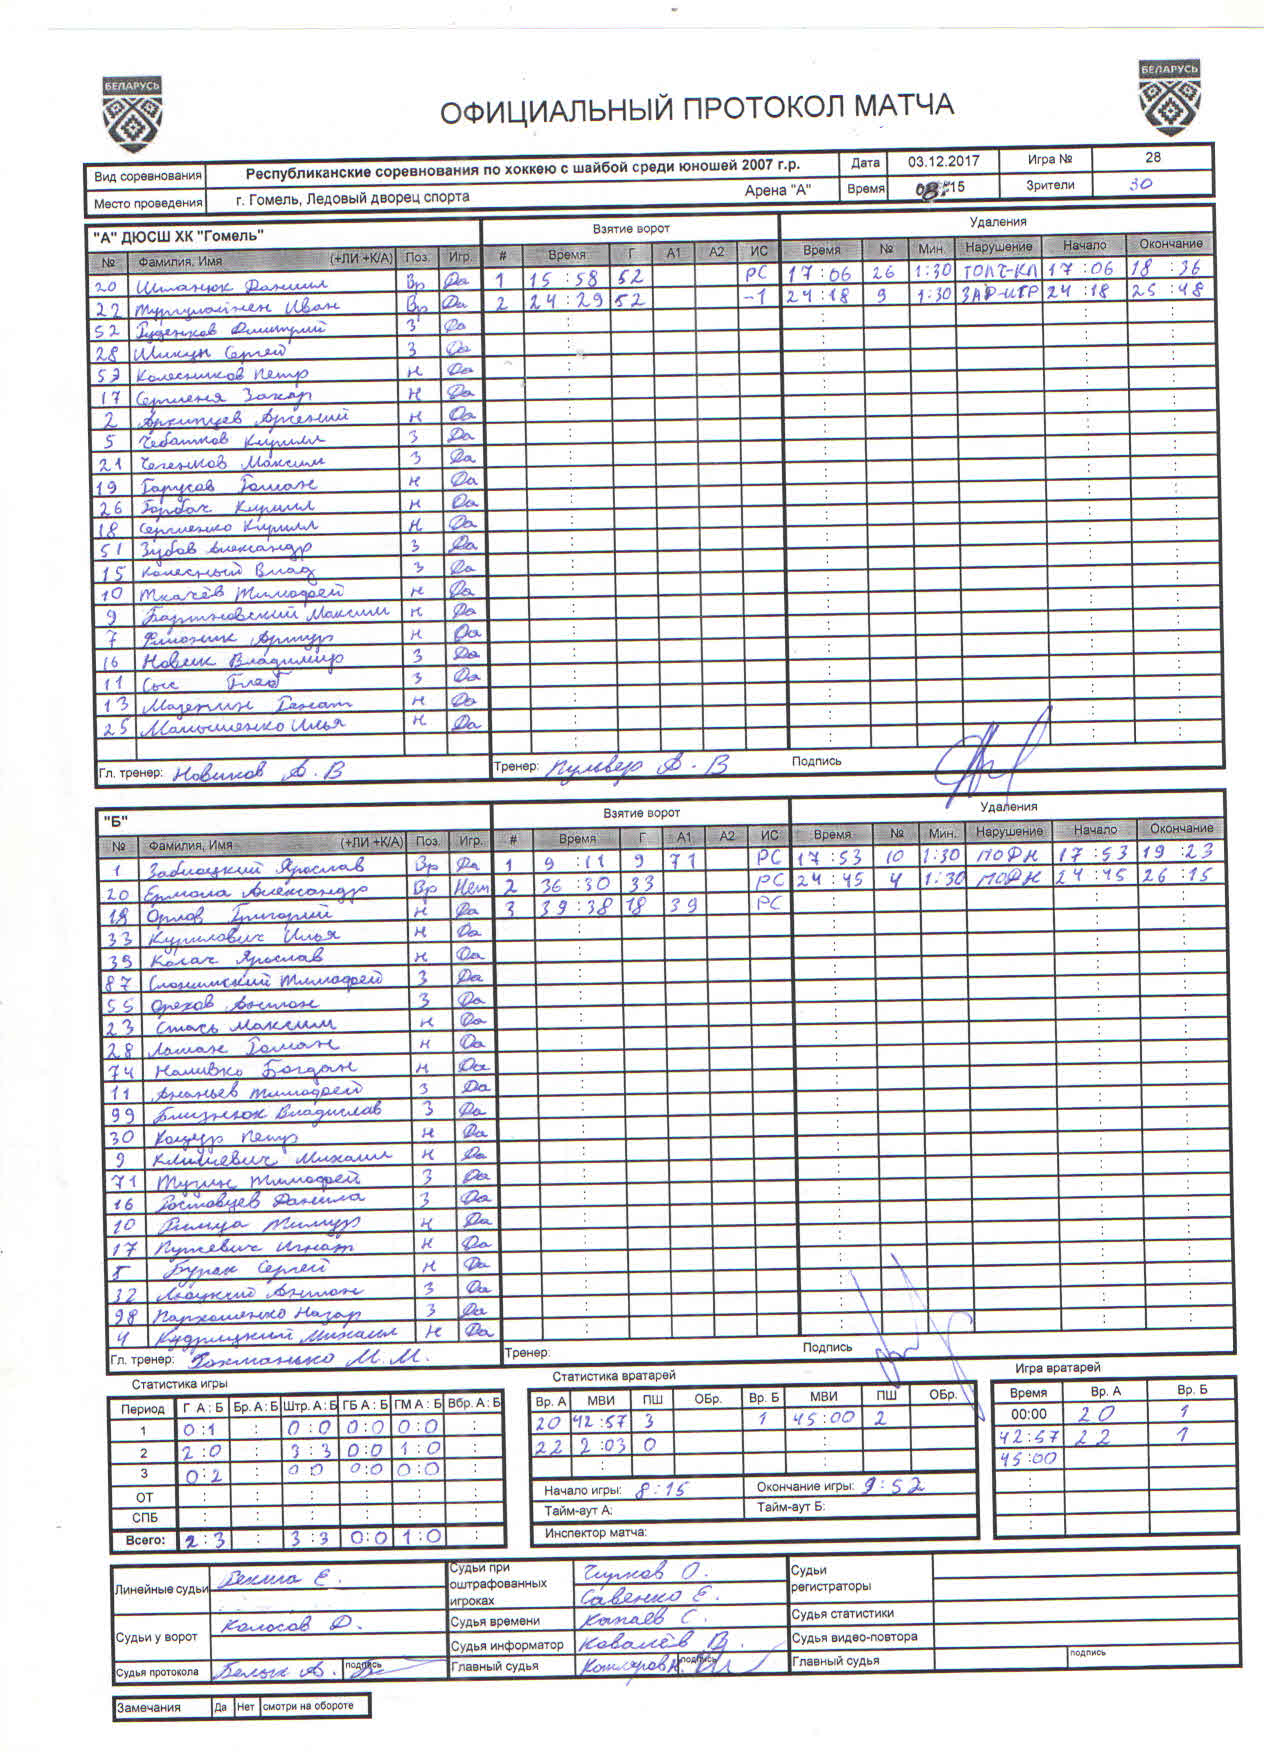 БЕЛАРУСЬ БЕЛАРУСЬ
ОФИЦИАЛЬНЫЙ ПРОТОКОЛ МАТЧА
Вид соревнования Республиканские соревнования по хоккею с шайбой среди юношей 2007 г.р. Дата 03.12.2017 Игра № 28
Место проведения г. Гомель, Ледовый дворец спорта Арена "А" Время 08:15 Зрители 30
"А" ДЮСШ ХК "Гомель" Взятие ворот Удаления
№ Фамилия, Имя (+ЛИ +К/А) Поз. Игр. # Время Г А1 А2 ИС Время № Мин. Нарушение Начало Окончание
20 Шпанюк Даниил Вр Да 1 15:58 52 РС 17:06 26 1:30 ТОЛЧ-КЛ 17:06 18:36
22 Иван Вр Да 2 24:29 52 -1 24:18 9 1:30 ЗАР-ИГР 24:18 25:48
52 Гуденков Дмитрий З Да
28 Шикун Сергей З Да
57 Колесников Петр Н Да
17 Сергиеня Захар Н Да
2 Архипцев Арсений Н Да
5 Чебатков Кирилл З Да
21 Чегенков Максим З Да
19 Гарусов Роман Н Да
26 Горбач Кирилл Н Да
18 Сергиенко Кирилл Н Да
51 Зубов Александр З Да
15 Колесный Влад З Да
10 Ткачёв Тимофей Н Да
9 Бартновский Максим Н Да
7 Артур Н Да
16 Новик Владимир З Да
11 Сыс Глеб З Да
13 Мазепин Ренат Н Да
25 Малышенко Илья Н Да
Гл. тренер: Новиков А.В Тренер: Пульвер А.В Подпись
"Б" Взятие ворот Удаления
№ Фамилия, Имя (+ЛИ +К/А) Поз. Игр. # Время Г А1 А2 ИС Время № Мин. Нарушение Начало Окончание
1 Заблоцкий Ярослав Вр Да 1 9:11 9 71 РС 17:53 10 1:30 ПОДН 17:53 19:23
20 Ермола Александр Вр Нет 2 36:30 33 РС 24:45 4 1:30 ПОДН 24:45 26:15
18 Орлов Григорий Н Да 3 39:38 18 39 РС
33 Курилович Илья Н Да
39 Колач Ярослав Н Да
87 Слонимский Тимофей З Да
55 Орехов Антон З Да
23 Стась Максим Н Да
28 Ломан Роман Н Да
74 Наливко Богдан Н Да
11 Ананьев Тимофей З Да
99 Близнюк Владислав З Да
30 Кацур Петр Н Да
9 Климиевич Михаил Н Да
71 Тузин Тимофей З Да
16 Ростовцев Данила З Да
10 Тимур Н Да
17 Пуцевич Игнат Н Да
5 Бурак Сергей Н Да
32 Антон З Да
98 Пархоменко Назар З Да
4 Кудрицкий Михаил Н Да
Гл. тренер: Рахманько М.М. Тренер: Подпись
Статистика игры Статистика вратарей Игра вратарей
Период Г А : Б Бр. А : Б Штр. А : Б ГБ А : Б ГМ А : Б Вбр. А : Б Вр. А МВИ ПШ ОБр. Вр. Б МВИ ПШ ОБр. Время Вр. А Вр. Б
1 0:1 : 0:0 0:0 0:0 : 20 42:57 3 1 45:00 2 00:00 20 1
2 2:0 : 3:3 0:0 1:0 : 22 2:03 0 : 42:57 22 1
3 0:2 : 0 0 0:0 0:0 : : : 45:00
ОТ : : : : : : Начало игры: 8:15 Окончание игры: 9:52
СПБ : : : : : : Тайм-аут А: Тайм-аут Б:
Всего: 2:3 : 3:3 0:0 1:0 : Инспектор матча:
Линейные судьи Бекиш Е. Судьи при оштрафованных игроках Чирков О. Судьи регистраторы
Савенко Е.
Судьи у ворот Колосов Д. Судья времени Капаев С. Судья статистики
Судья информатор Ковалёв В. Судья видео-повтора
Судья протокола Белык А. подпись Главный судья Котляров Н. подпись Главный судья подпись
Замечания Да Нет смотри на обороте